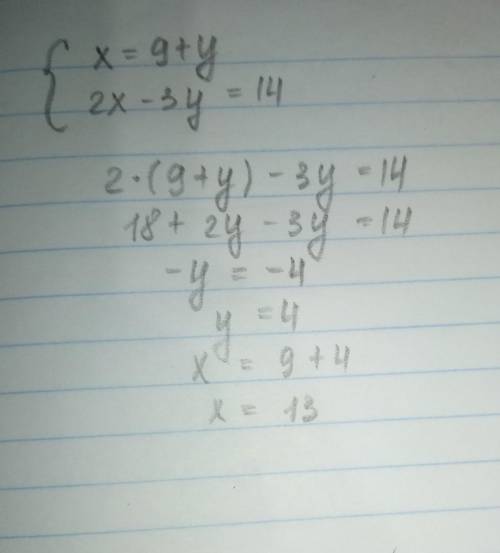 { x = 9 + y
2x - 3y = 14
2 · (9 + y) - 3y = 14
18 + 2y - 3y = 14
-y = -4
y = 4
x = 9 + 4
x = 13